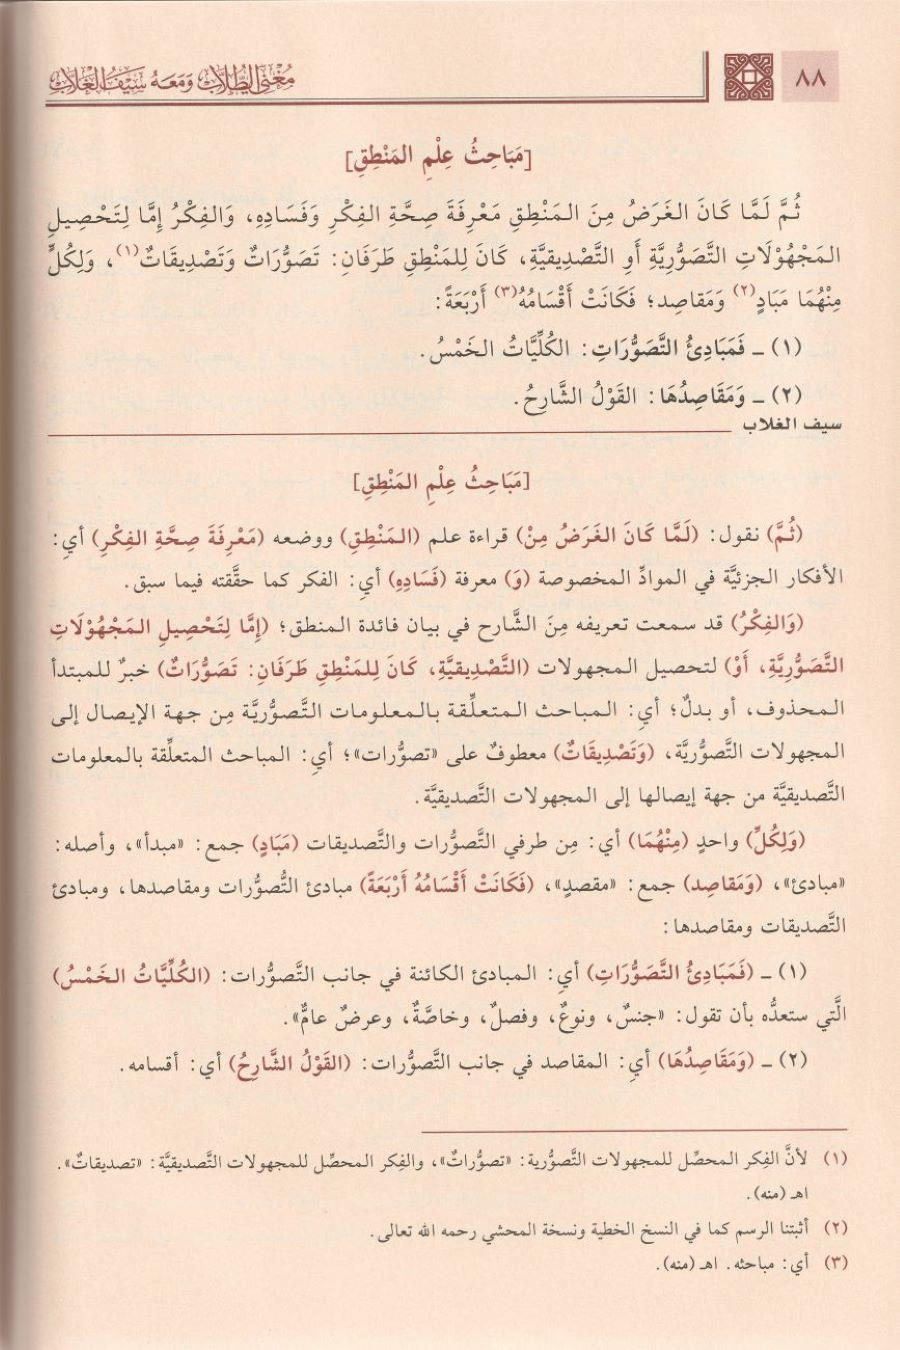 ٨٨
مُغْنِي الطُّلَّابِ وَمَعَهُ سَيْفُ الغَلَّابِ
[مَبَاحِثُ عِلْمِ المَنْطِقِ]
ثُمَّ لَمَّا كَانَ الغَرَضُ مِنَ المَنْطِقِ مَعْرِفَةَ صِحَّةِ الفِكْرِ وَفَسَادِهِ، وَالفِكْرُ إِمَّا لِتَحْصِيلِ
المَجْهُوْلَاتِ التَّصَوُّرِيَّةِ أَوِ التَّصْدِيقيَّةِ، كَانَ لِلمَنْطِقِ طَرَفَانِ: تَصَوُّرَاتٌ وَتَصْدِيقَاتٌ(١)، وَلِكُلٍّ
مِنْهُمَا مَبَادٍ(٢) وَمَقاصِد؛ فَكَانَتْ أَقْسَامُهُ(٣) أَرْبَعَةً:
(١) ـ فَمَبَادِئُ التَّصَوُّرَاتِ: الكُلِّيَّاتُ الخَمْسُ.
(٢) ـ وَمَقَاصِدُهَا: القَوْلُ الشَّارِحُ.
سيف الغلاب
[مَبَاحِثُ عِلْمِ المَنْطِقِ]
(ثُمَّ) نقول: (لَمَّا كَانَ الغَرَضُ مِنْ) قراءة علم (المَنْطِقِ) ووضعه (مَعْرِفَةَ صِحَّةِ الفِكْرِ) أي:
الأفكار الجزئيَّة في الموادِّ المخصوصة (وَ) معرفة (فَسَادِهِ) أي: الفكر كما حقَّقته فيما سبق.
(وَالفِكْرُ) قد سمعت تعريفه مِنَ الشَّارح في بيان فائدة المنطق؛ (إِمَّا لِتَحْصِيلِ المَجْهُوْلَاتِ
التَّصَوُّرِيَّةِ، أَوْ) لتحصيل المجهولات (التَّصْدِيقيَّةِ، كَانَ لِلمَنْطِقِ طَرَفَانِ: تَصَوُّرَاتٌ) خبرٌ للمبتدأ
المحذوف، أو بدلٌ؛ أي: المباحث المتعلِّقة بالمعلومات التَّصوُّريَّة مِن جهة الإيصال إلى
المجهولات التَّصوُّريَّة، (وَتَصْدِيقَاتٌ) معطوفٌ على «تصوُّرات»؛ أي: المباحث المتعلِّقة بالمعلومات
التَّصديقيَّة من جهة إيصالها إلى المجهولات التَّصديقيَّة.
(وَلِكُلِّ) واحدٍ (مِنْهُمَا) أي: مِن طرفي التَّصوُّرات والتَّصديقات (مَبَادٍ) جمع: «مبدأ»، وأصله:
«مبادئ»، (وَمَقاصِد) جمع: «مقصدٍ»، (فَكَانَتْ أَقْسَامُهُ أَرْبَعَةً) مبادئ التُّصوُّرات ومقاصدها، ومبادئ
التَّصديقات ومقاصدها:
(١) ـ (فَمَبَادِئُ التَّصَوُّرَاتِ) أي: المبادئ الكائنة في جانب التَّصوُّرات: (الكُلِّيَّاتُ الخَمْسُ)
الَّتي ستعدُّه بأن تقول: «جنسٌ، ونوعٌ، وفصلٌ، وخاصَّةٌ، وعرضٌ عامٌّ».
(٢) ـ (وَمَقَاصِدُهَا) أي: المقاصد في جانب التَّصوُّرات: (القَوْلُ الشَّارِحُ) أي: أقسامه.
(١) لأنَّ الفِكر المحصِّل للمجهولات التَّصوُّرية: «تصوُّراتٌ»، والفِكر المحصِّل للمجهولات التَّصديقيَّة: «تصديقاتٌ».
اهـ (منه).
(٢) أثبتنا الرسم كما في النسخ الخطية ونسخة المحشي رحمه الله تعالى.
(٣) أي: مباحثه. اهـ (منه).